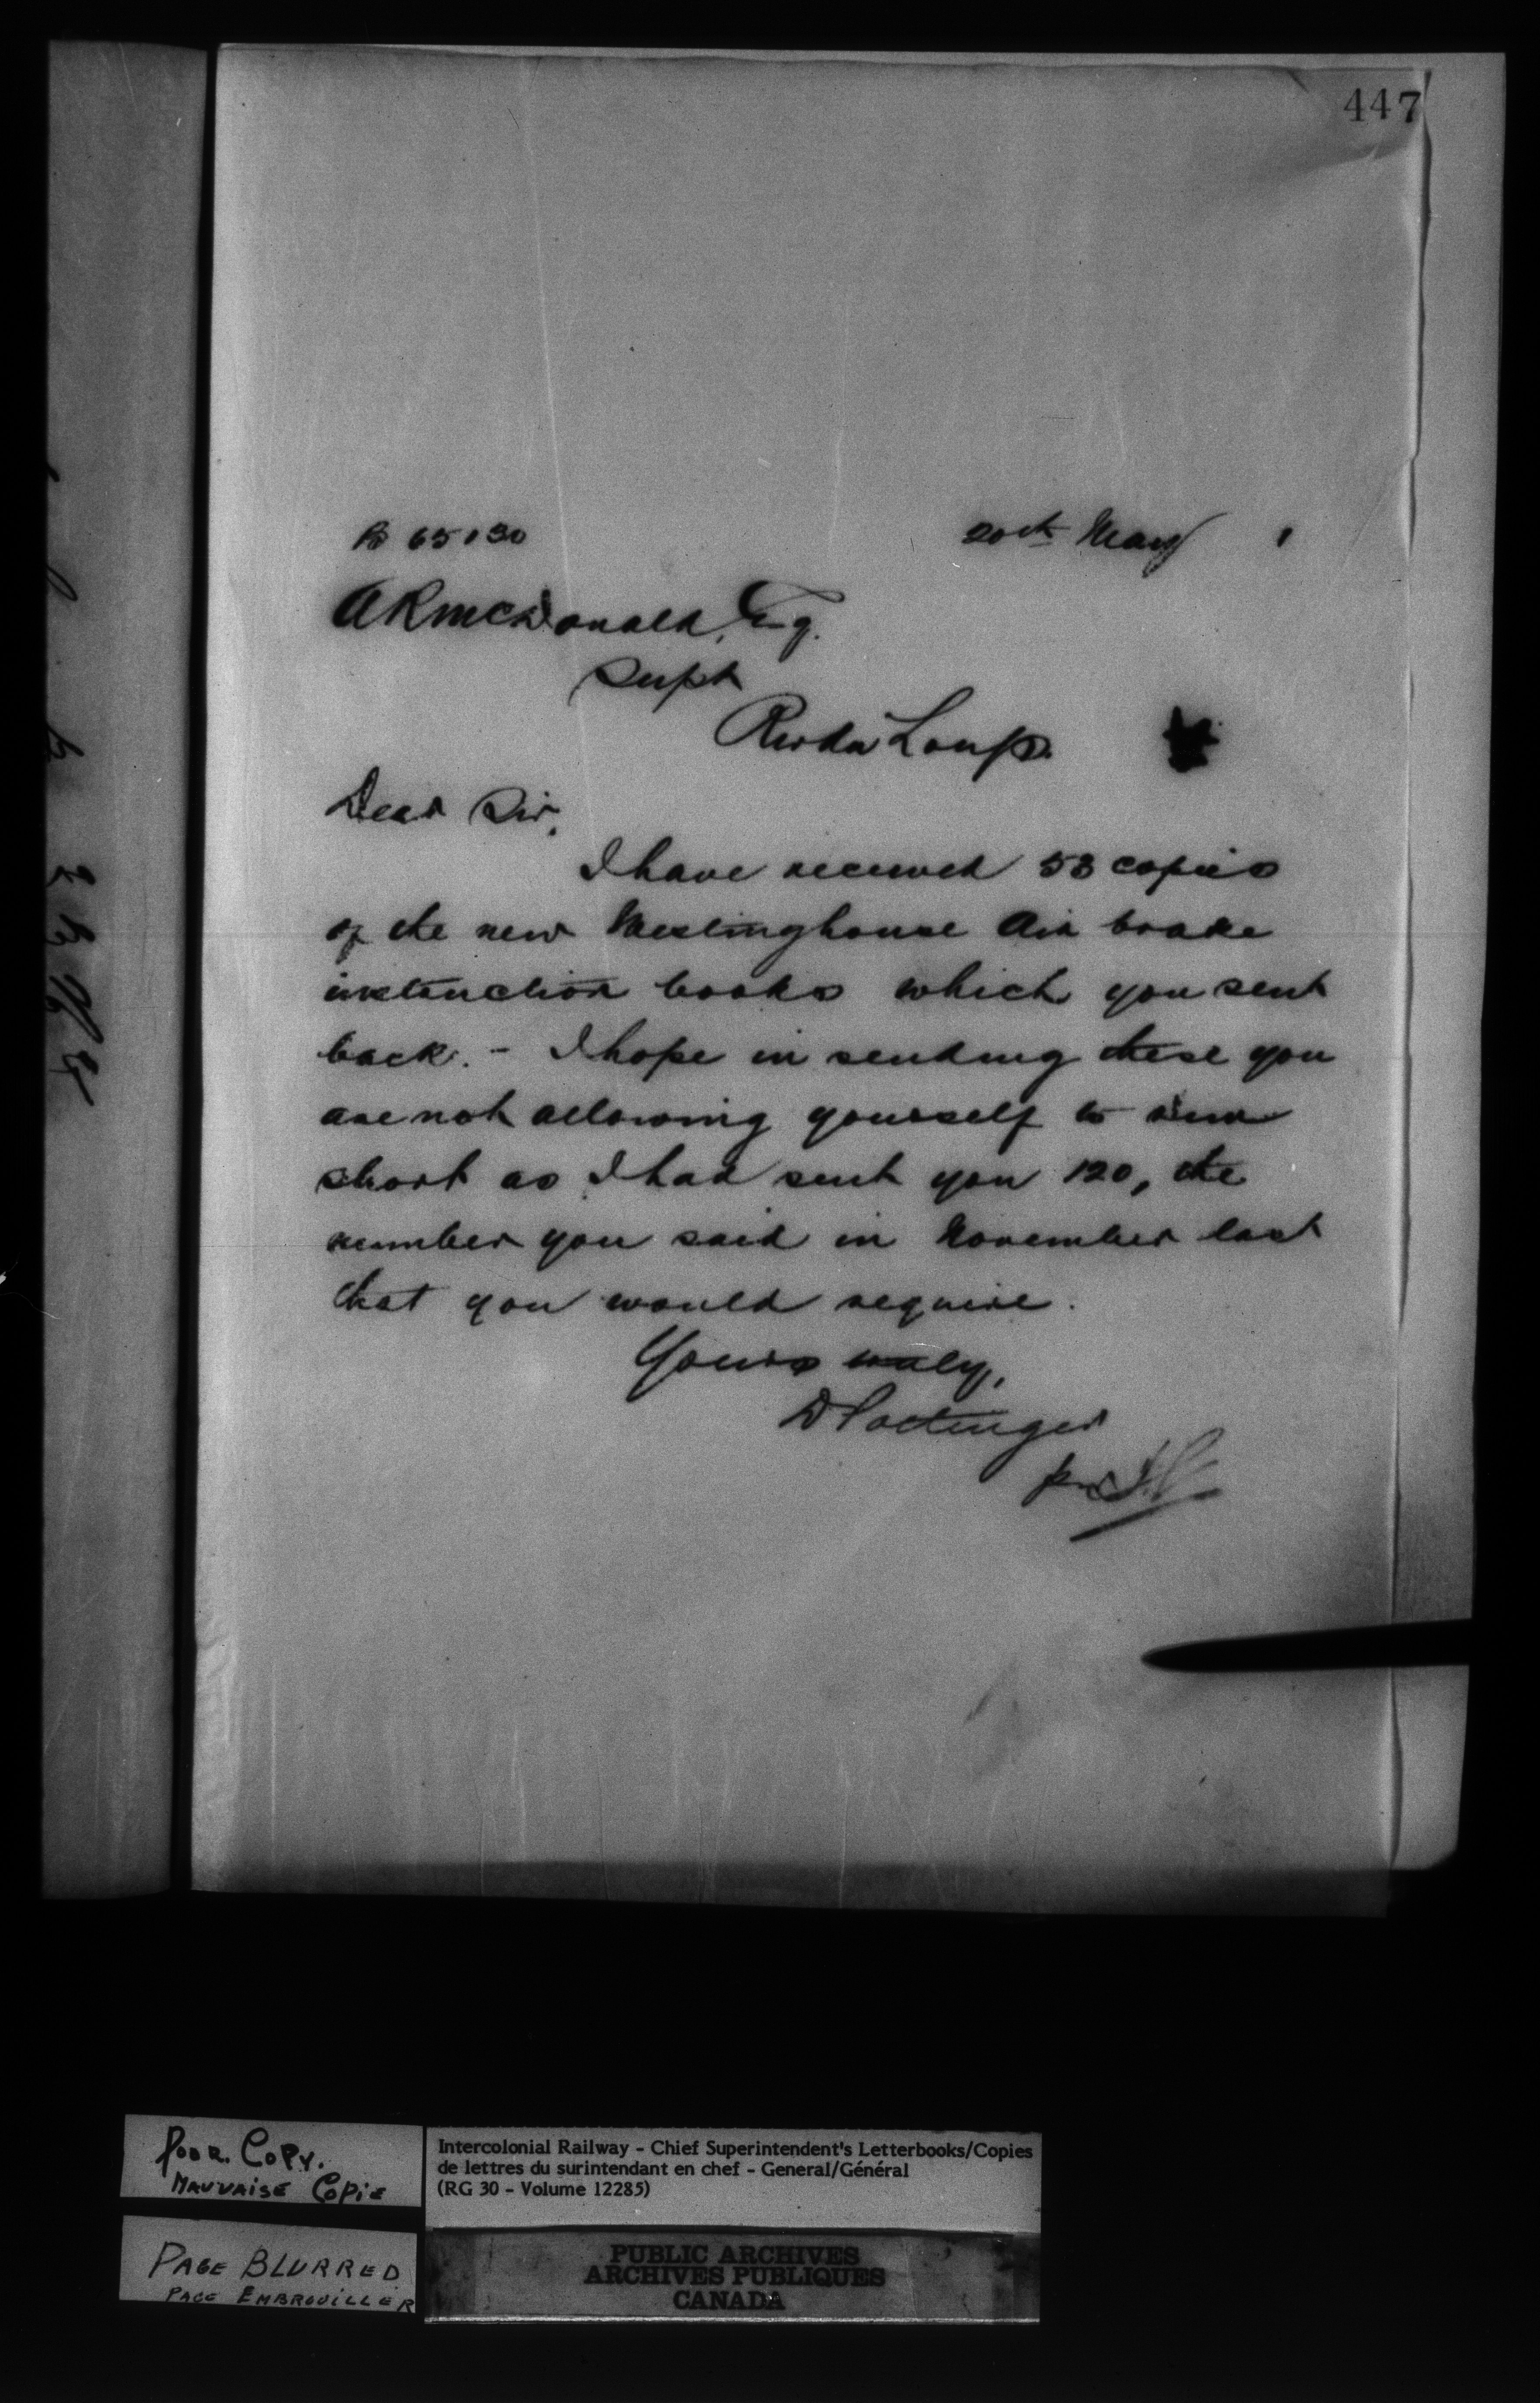 447
65130
20th May 1
A R McDonald, Esq.
Supt
Riv du Loup.
Dear Sir,
I have received 53 copies
of the new Westinghouse Air brake
instruction books which you sent
back. - I hope in sending these you
are not allowing yourself to run
short as I had sent you 120, the
number you said in November last
that you would require.
Yours truly,
D Pottinger
per
POOR COPY.
MAUVAISE COPIE
Intercolonial Railway - Chief Superintendent's Letterbooks/Copies
de lettres du surintendant en chef - General/Général
(RG 30 - Volume 12285)
PAGE BLURRED
PAGE EMBROUILLER
PUBLIC ARCHIVES
ARCHIVES PUBLIQUES
CANADA